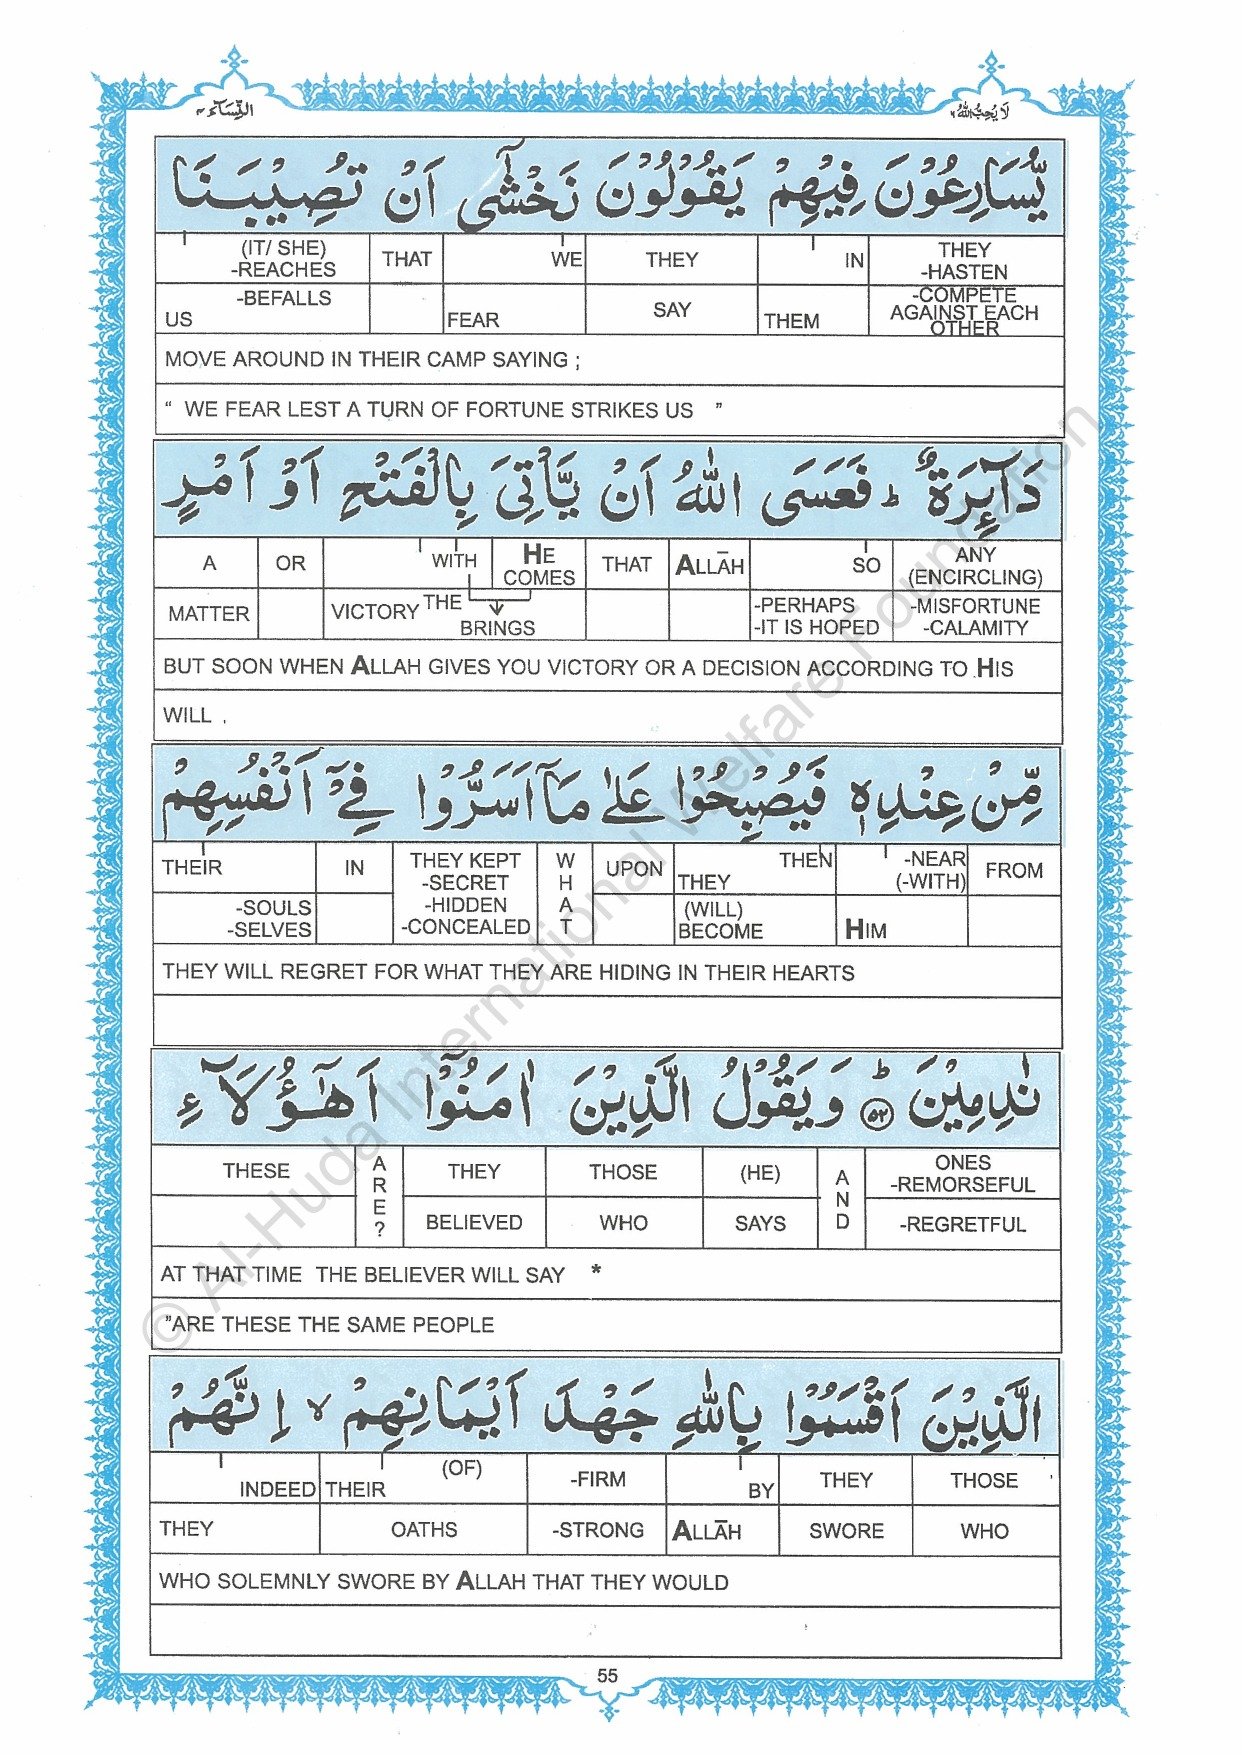 لَا يُحِبُّ اللّٰهُ ٦
النِّسَآء ٤
يُّسَارِعُوْنَ فِيْهِمْ يَقُوْلُوْنَ نَخْشٰٓى اَنْ تُصِيْبَنَا
(IT/ SHE) THAT WE THEY IN THEY
-REACHES -HASTEN
-BEFALLS SAY -COMPETE
US FEAR THEM AGAINST EACH
OTHER
MOVE AROUND IN THEIR CAMP SAYING ;
“ WE FEAR LEST A TURN OF FORTUNE STRIKES US ”
دَآئِرَةٌ ؕ فَعَسَى اللّٰهُ اَنْ يَّاْتِىَ بِالْفَتْحِ اَوْ اَمْرٍ
A OR WITH HE THAT ALLĀH SO ANY
COMES (ENCIRCLING)
MATTER VICTORY THE -PERHAPS -MISFORTUNE
BRINGS -IT IS HOPED -CALAMITY
BUT SOON WHEN ALLAH GIVES YOU VICTORY OR A DECISION ACCORDING TO HIS
WILL .
مِّنْ عِنْدِهٖ فَيُصْبِحُوْا عَلٰى مَآ اَسَرُّوْا فِيْٓ اَنْفُسِهِمْ
THEIR IN THEY KEPT WHAT UPON THEN -NEAR FROM
-SECRET THEY (-WITH)
-SOULS -HIDDEN (WILL)
-SELVES -CONCEALED BECOME HIM
THEY WILL REGRET FOR WHAT THEY ARE HIDING IN THEIR HEARTS
نٰدِمِيْنَ ؕ ﴿۵۲﴾ وَيَقُوْلُ الَّذِيْنَ اٰمَنُوْٓا اَهٰٓؤُلَآءِ
THESE ARE? THEY THOSE (HE) AND ONES
-REMORSEFUL
BELIEVED WHO SAYS -REGRETFUL
AT THAT TIME THE BELIEVER WILL SAY *
”ARE THESE THE SAME PEOPLE
الَّذِيْنَ اَقْسَمُوْا بِاللّٰهِ جَهْدَ اَيْمَانِهِمْ ۙ اِنَّهُمْ
INDEED THEIR (OF) -FIRM BY THEY THOSE
THEY OATHS -STRONG ALLĀH SWORE WHO
WHO SOLEMNLY SWORE BY ALLAH THAT THEY WOULD
55
© Al-Huda International Welfare Foundation